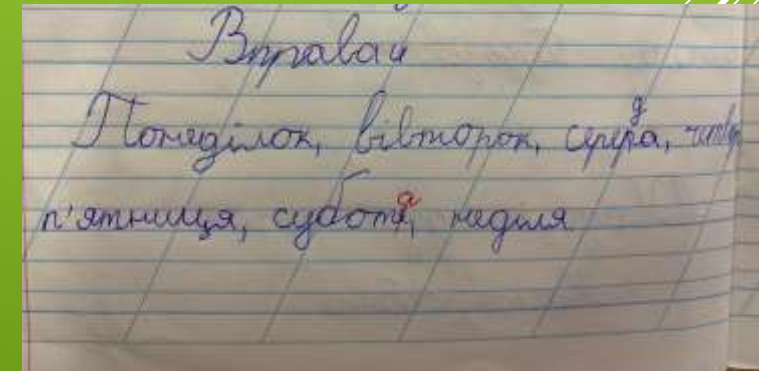 Вправа 4
Понеділок, вівторок, сере̶р̶да, четвер
п'ятниця, субота, неділя